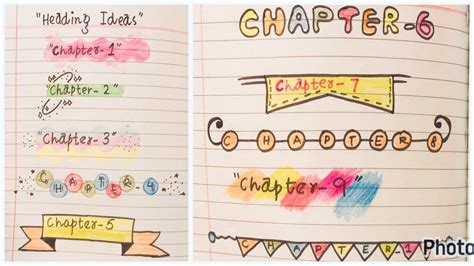 "Heading Ideas"
"Chapter-1"
"Chapter-2"
"Chapter-3"
CHAPTER-4
Chapter-5
CHAPTER-6
Chapter-7
CHAPTER 8
"Chapter-9"
CHAPTER-1
Photo